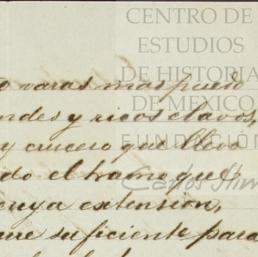 CENTRO DE
ESTUDIOS
DE HISTORIA
DE MEXICO
FUNDACIÓN
Carlos Slim
varas mas
ndes y ricos clavos,
y crucero que llevó
do el trame que
cuya extension,
suficiente para